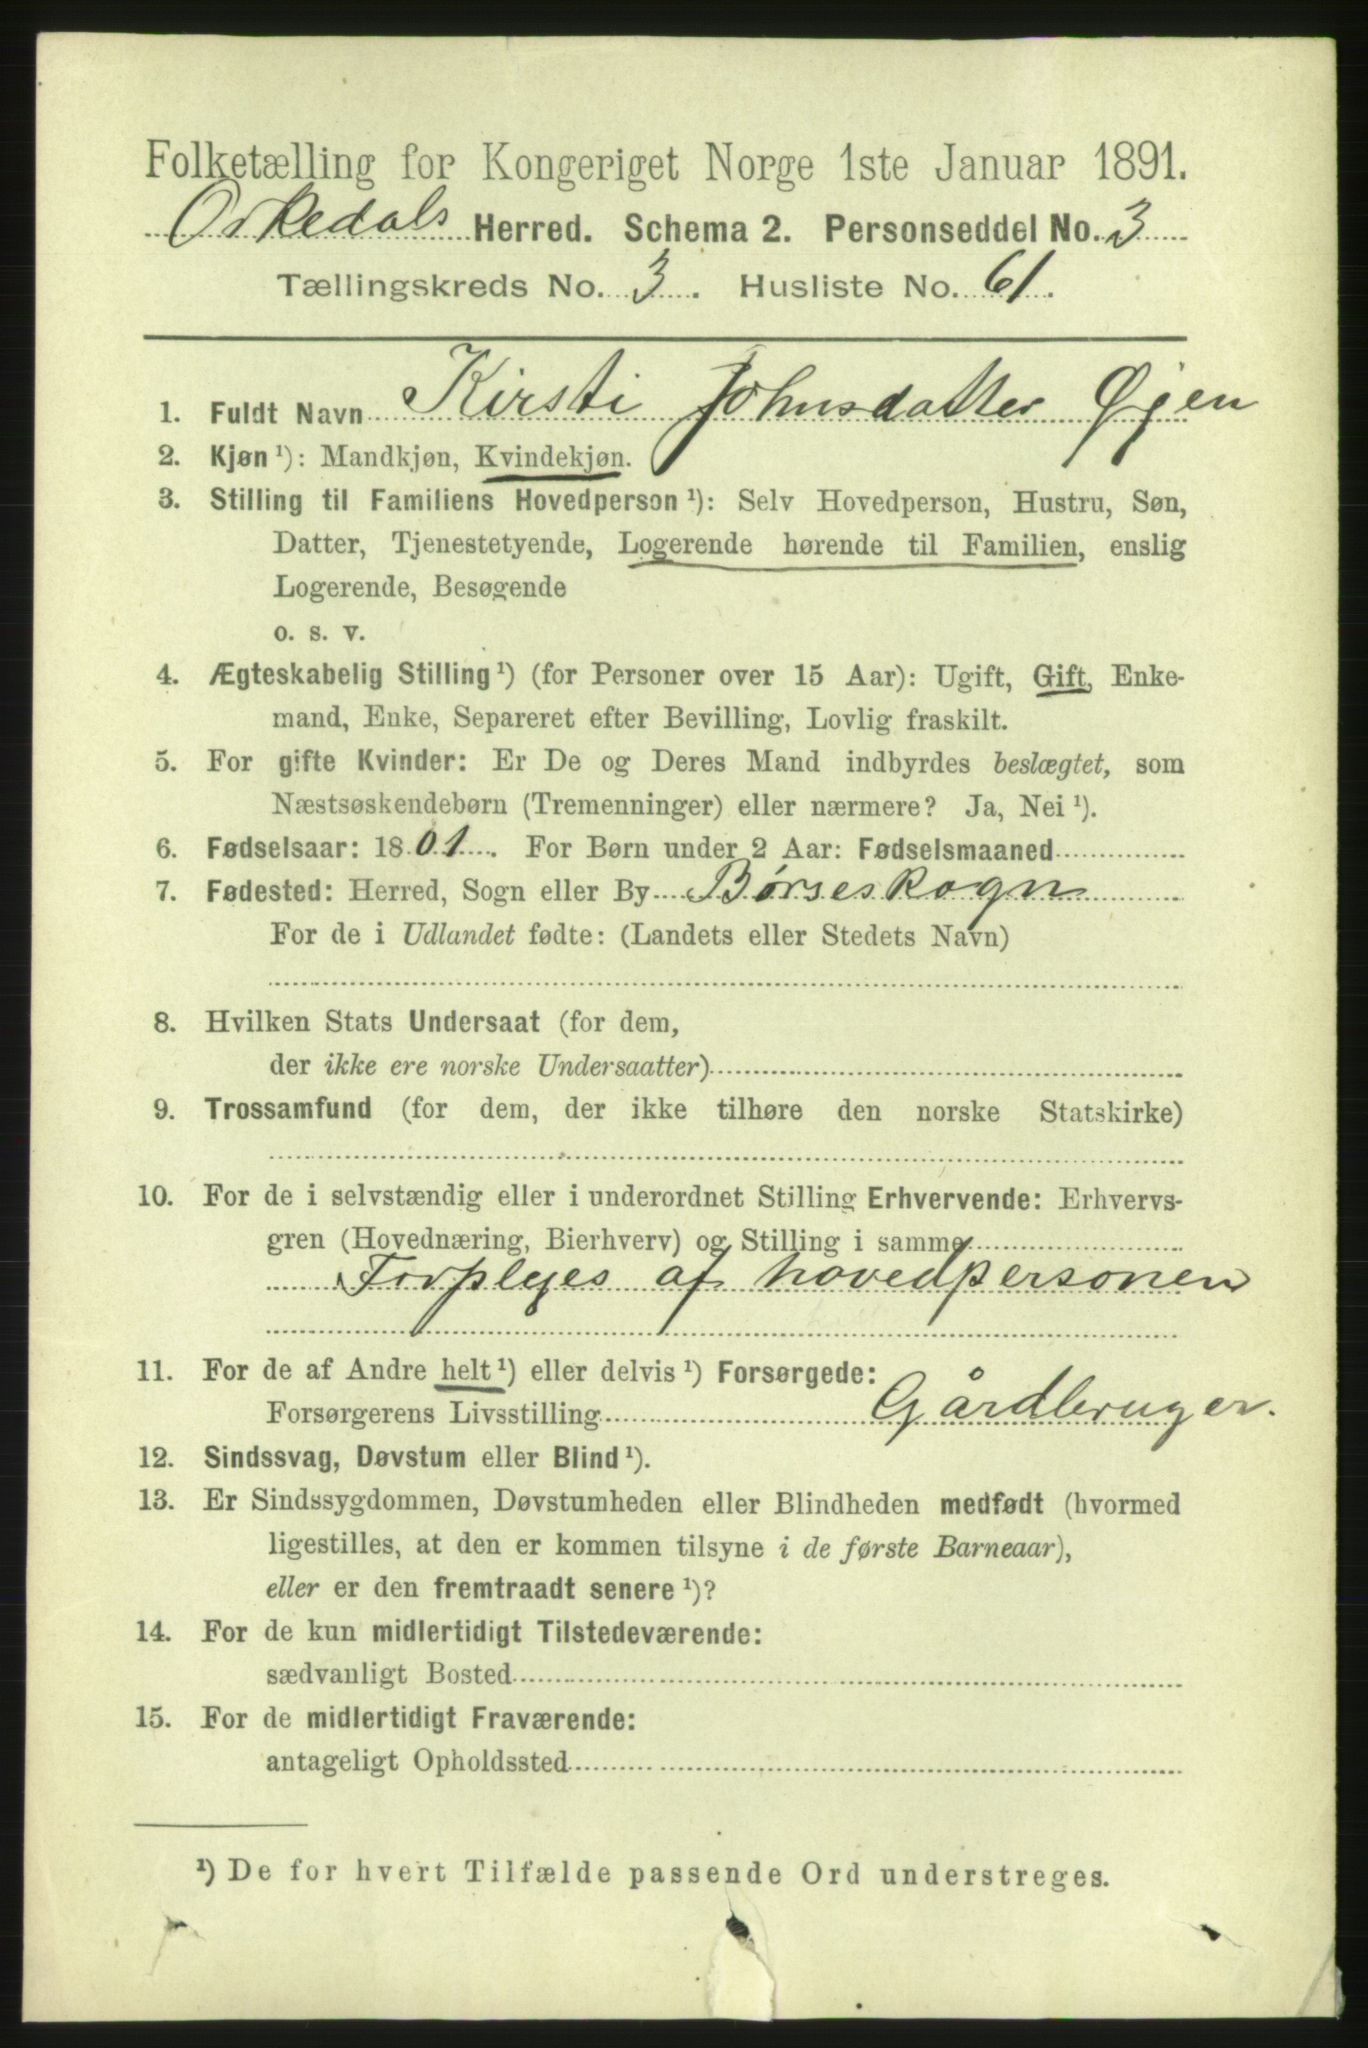 Folketælling for Kongeriget Norge 1ste Januar 1891.
Orkedals Herred. Schema 2. Personseddel No. 3
Tællingskreds No. 3. Husliste No. 61.
1. Fuldt Navn Kirsti Johnsdatter Øyen
2. Kjøn ¹): Mandkjøn, Kvindekjøn.
3. Stilling til Familiens Hovedperson ¹): Selv Hovedperson, Hustru, Søn,
Datter, Tjenestetyende, Logerende hørende til Familien, enslig
Logerende, Besøgende
o. s. v.
4. Ægteskabelig Stilling ¹) (for Personer over 15 Aar): Ugift, Gift, Enke-
mand, Enke, Separeret efter Bevilling, Lovlig fraskilt.
5. For gifte Kvinder: Er De og Deres Mand indbyrdes beslægtet, som
Næstsøskendebørn (Tremenninger) eller nærmere? Ja, Nei ¹).
6. Fødselsaar: 1801. For Børn under 2 Aar: Fødselsmaaned
7. Fødested: Herred, Sogn eller By Børseskogn
For de i Udlandet fødte: (Landets eller Stedets Navn)
8. Hvilken Stats Undersaat (for dem,
der ikke ere norske Undersaatter)
9. Trossamfund (for dem, der ikke tilhøre den norske Statskirke)
10. For de i selvstændig eller i underordnet Stilling Erhvervende: Erhvervs-
gren (Hovednæring, Bierhverv) og Stilling i samme
Forpleges af hovedpersonen
11. For de af Andre helt ¹) eller delvis ¹) Forsørgede:
Forsørgerens Livsstilling Gårdbruger.
12. Sindssvag, Døvstum eller Blind ¹).
13. Er Sindssygdommen, Døvstumheden eller Blindheden medfødt (hvormed
ligestilles, at den er kommen tilsyne i de første Barneaar),
eller er den fremtraadt senere ¹)?
14. For de kun midlertidigt Tilstedeværende:
sædvanligt Bosted
15. For de midlertidigt Fraværende:
antageligt Opholdssted
¹) De for hvert Tilfælde passende Ord understreges.